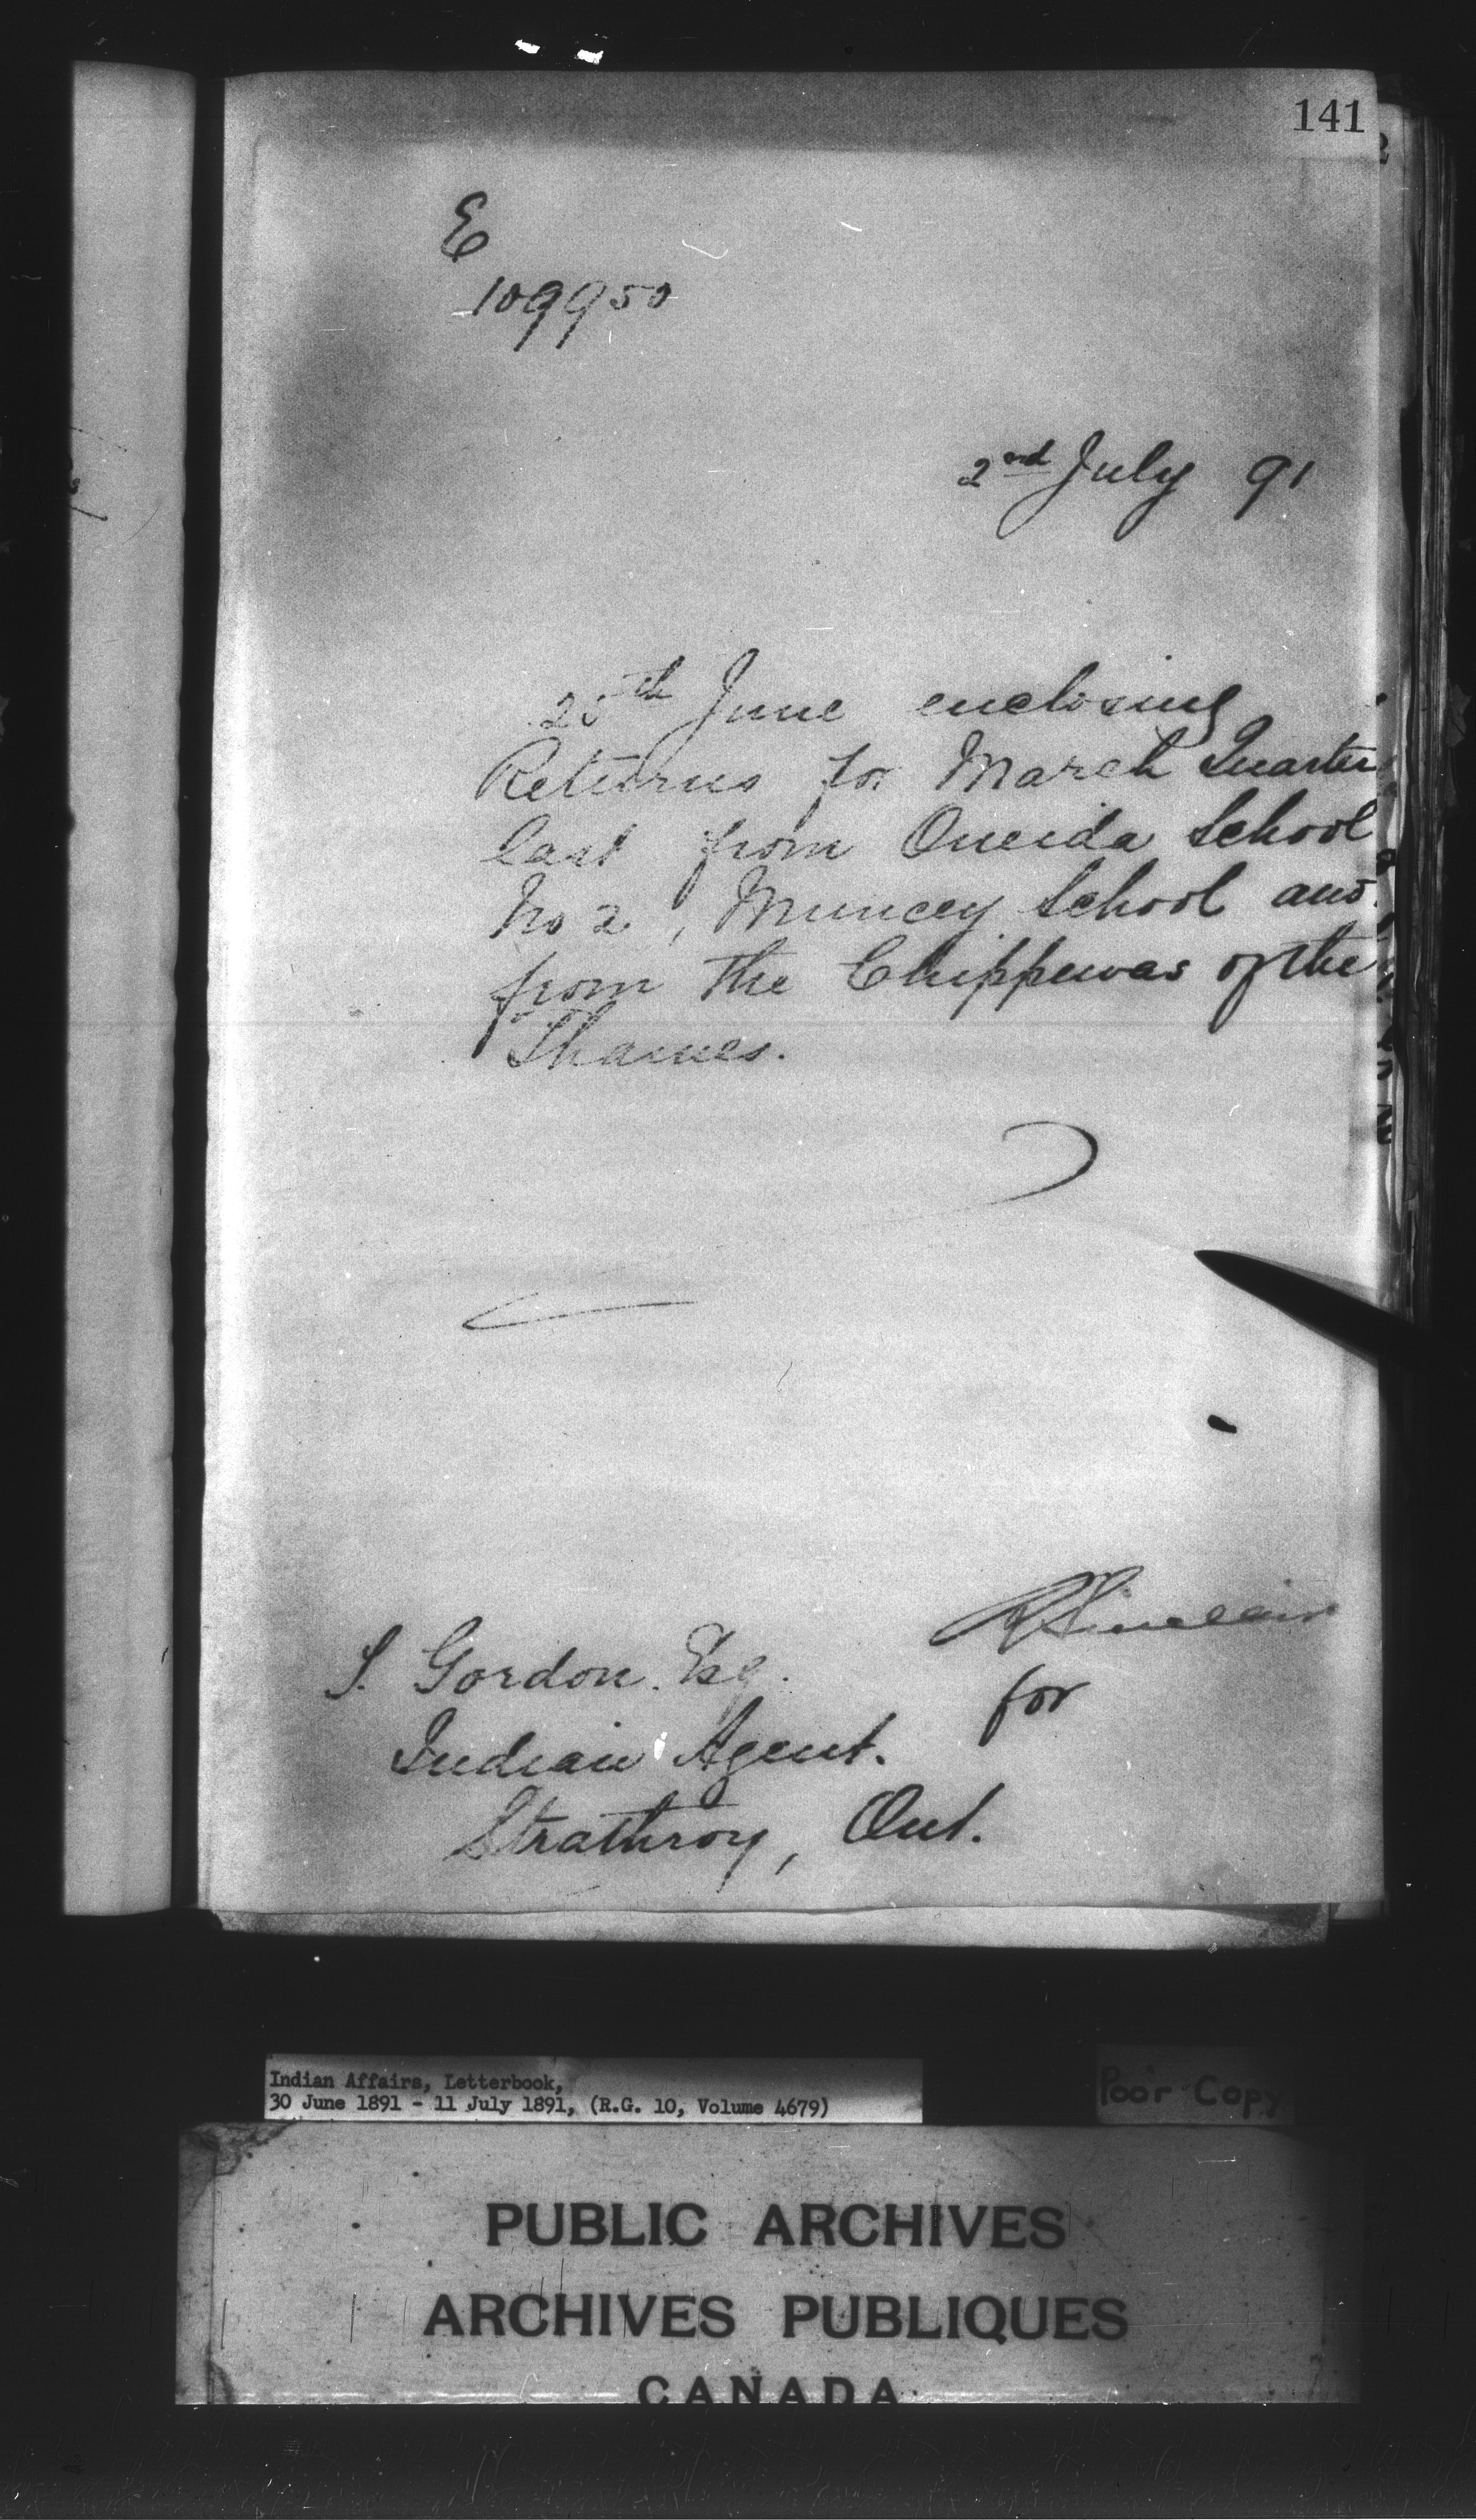 141
E
109950
2nd July 91
25th June enclosing
Returns for March Quarter
last from Oneida School
No 2, Muncey School and
from the Chippewas of the
Thames.
R Sinclair
for
S. Gordon. Esq.
Indian Agent.
Strathroy, Ont.
Indian Affairs, Letterbook,
30 June 1891 - 11 July 1891, (R.G. 10, Volume 4679)
Poor Copy
PUBLIC ARCHIVES
ARCHIVES PUBLIQUES
CANADA